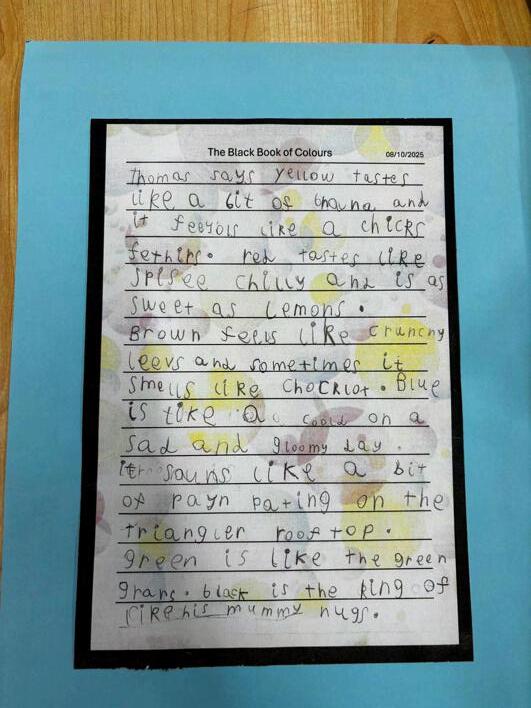 The Black Book of Colours
08/10/2025
Thomas says yellow tastes
like a bit of and
it like a chicks
fethirs. red tastes like
spisee chilly and is as
sweet as lemons.
Brown feels like crunchy
leevs and sometimes it
smells like . Blue
is like a on a
sad and gloomy day.
it souns like a bit
of payn pating on the
triangler roof top.
green is like the green
grans. black is the king of
his mummy hugs.